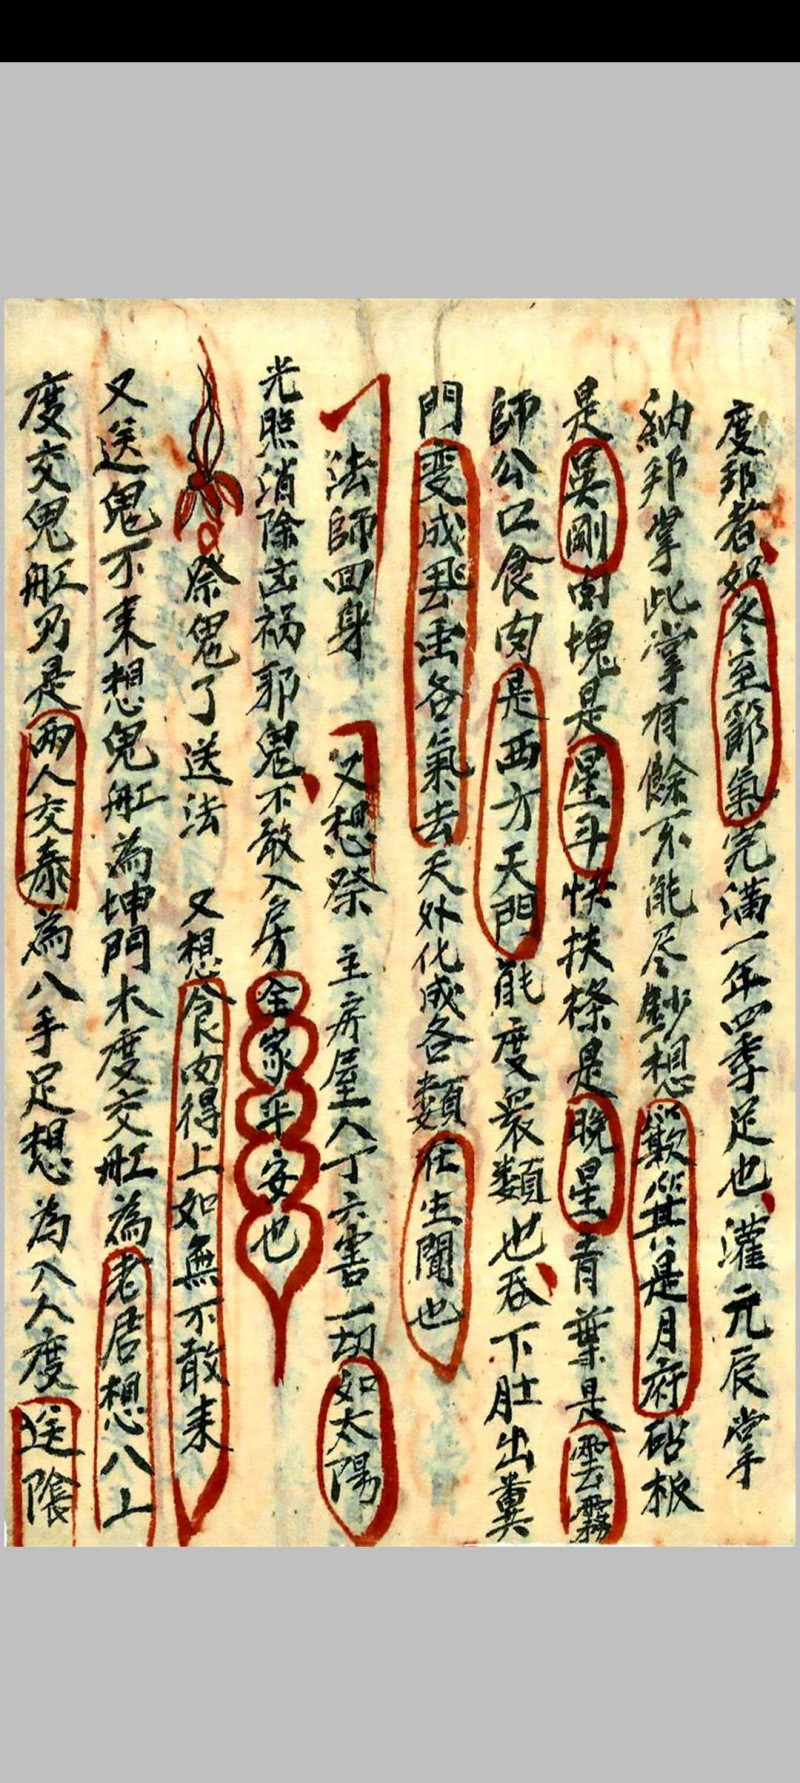 度邦者如冬至節氣完满一年四季足也灌元辰掌
納邦掌此掌有餘不能尽鈔想 其是月府砧板
是吴剛肉塊是星斗快扶條是晚星青葉是雲霧
師公口食肉是西方天門能度衆類也吞下肚出糞
門变成 虫各氣去天外化成各類在生聞也
法師回身 又想祭主房屋人丁六害一切如太陽
光照消除凶祸邪鬼不敢入房全家平安也
祭鬼了送法 又想食肉得上如無不敢来
又送鬼不来想鬼舡為坤門木度交舡為老居想八上
度交鬼舡乃是兩人交泰為八手足想為六人度送